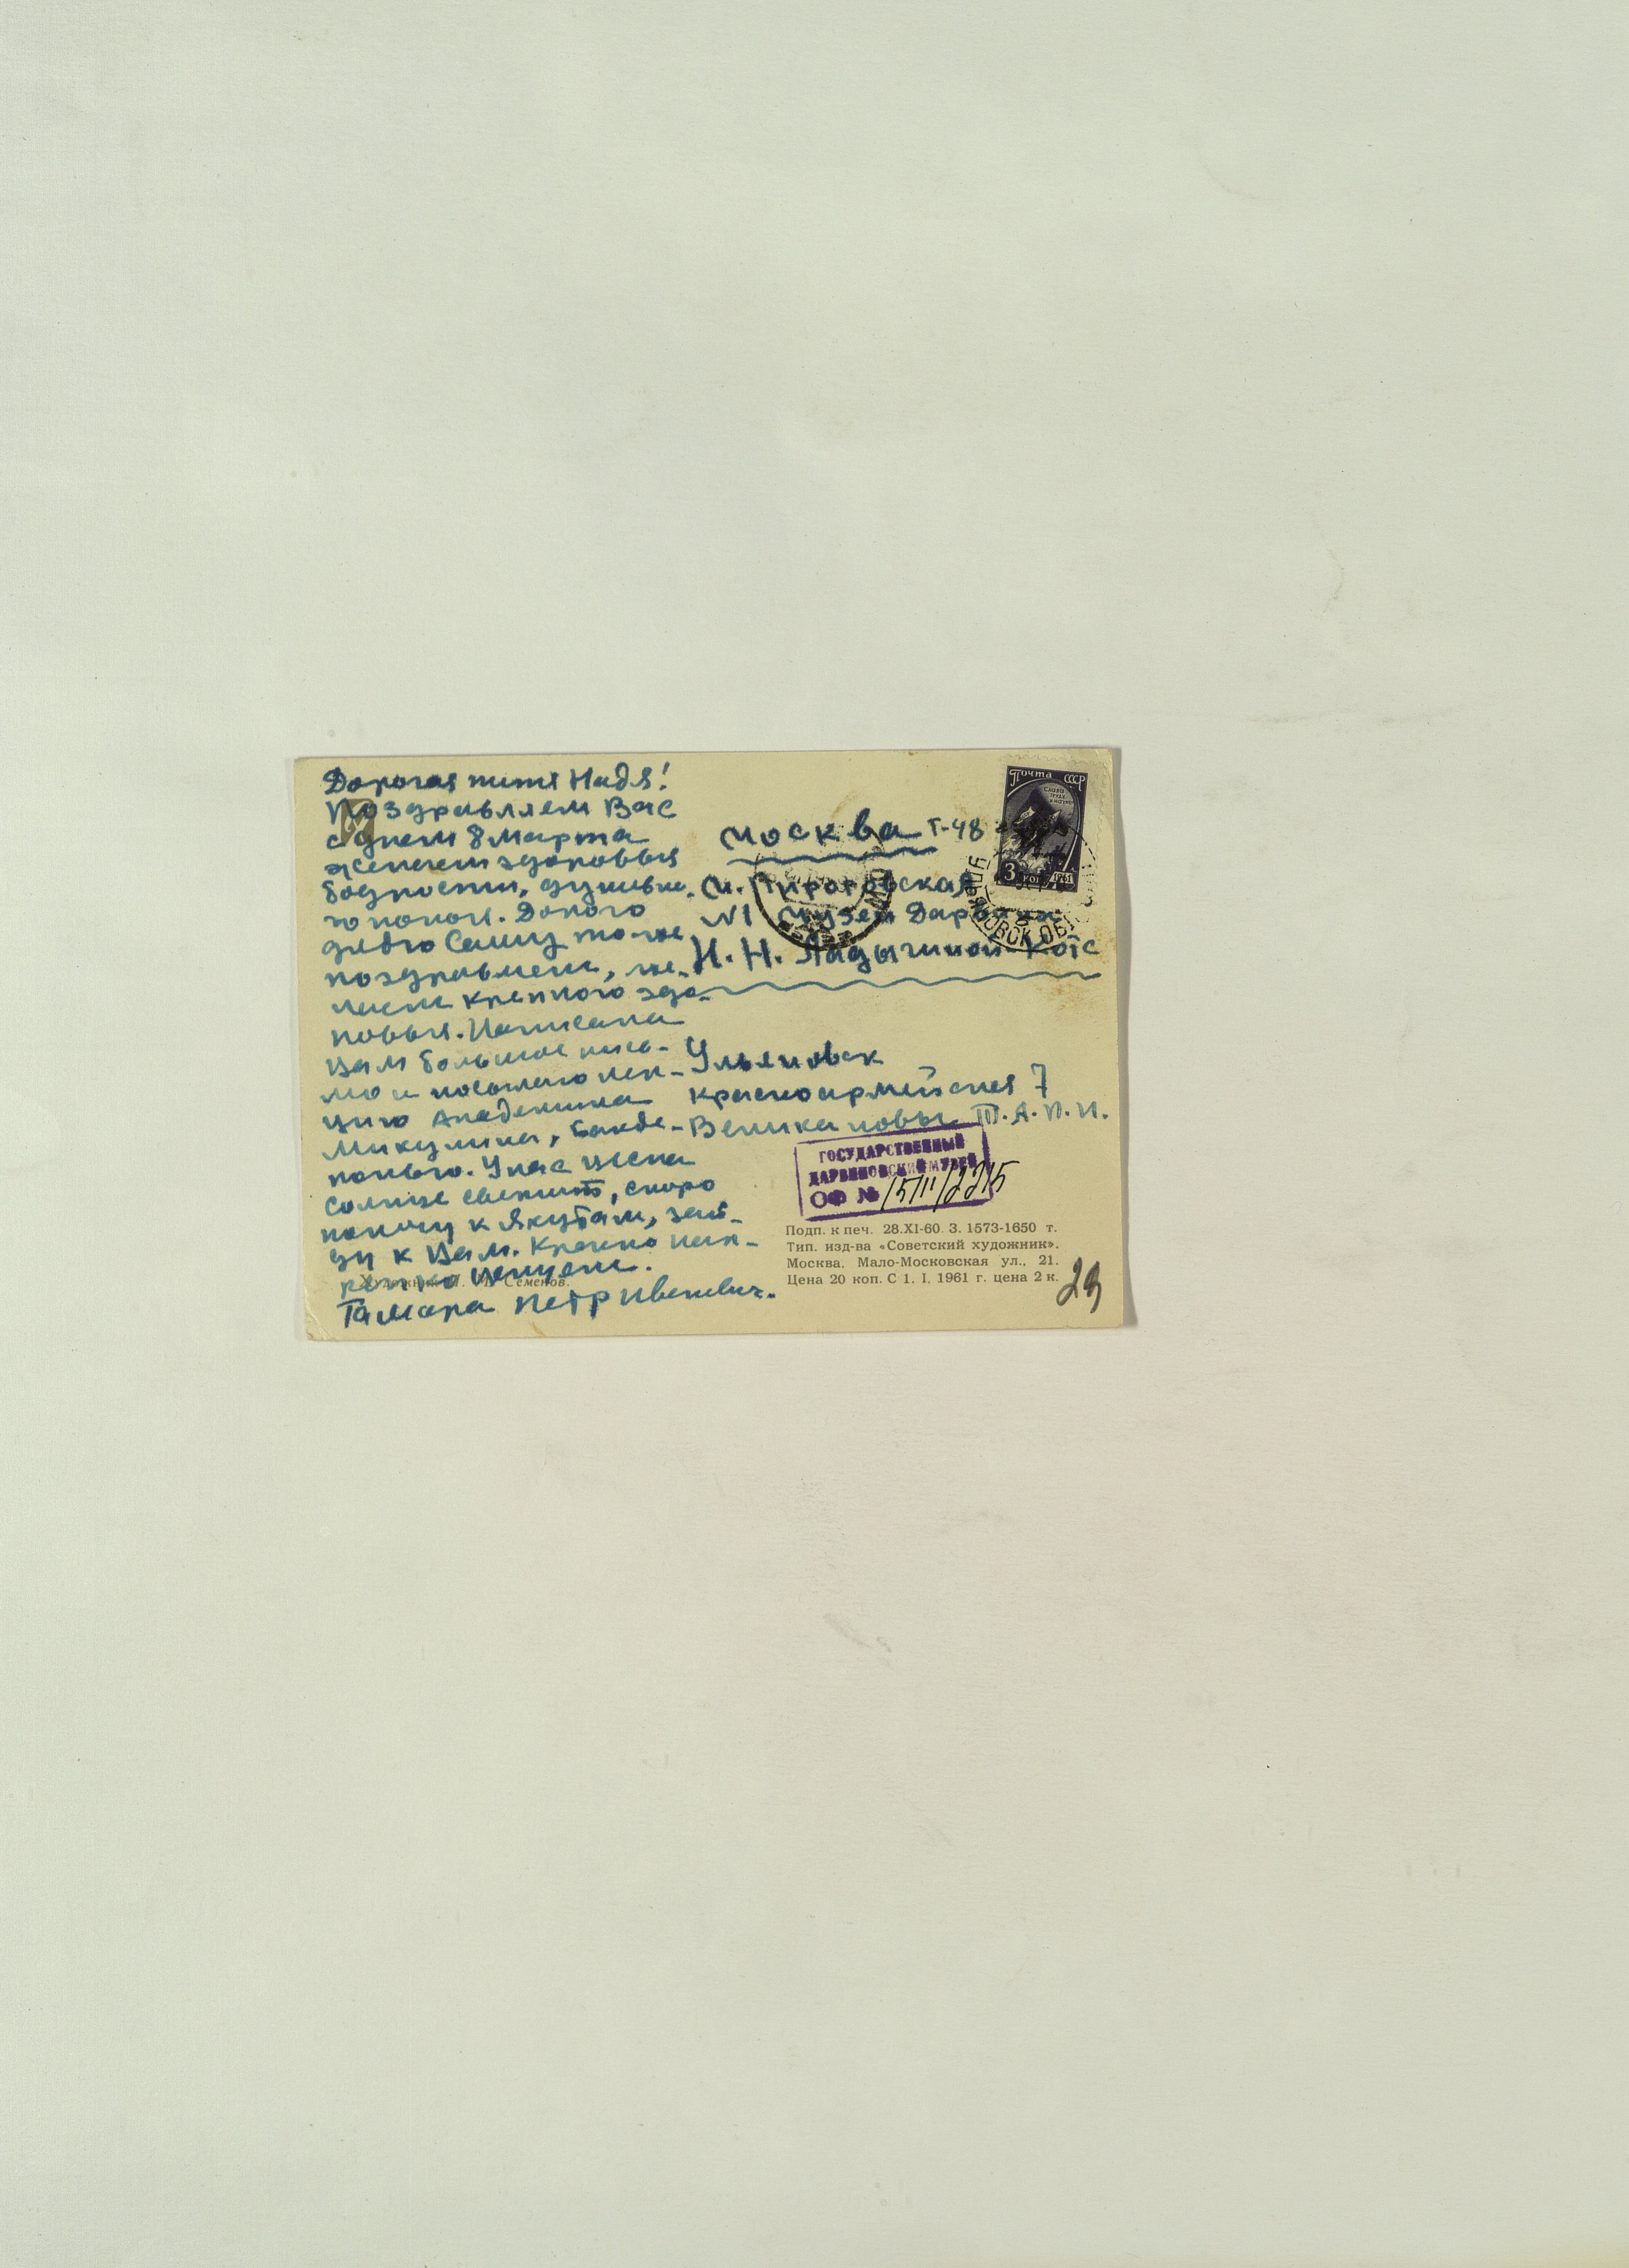 Дорогая тетя Надя!
Поздравляем Вас
с днем 8 марта
желаем здоровья
бодрости, душевно
го покоя. Дорого
дядю Сашу то-же
поздравляем, же-
лаем крепкого здо-
ровья. Написала
Вам большое пись-
мо и посылаю лек-
цию Академика
Микулина,
У нас весна
солнце светит, скоро
полечу к Якутам, зай-
ду к Вам. Крепко
целуем.
Тамара Петр Иванович.
Почта СССР
3 коп 1961
Москва Г-48
М. Пироговская
N1 Музей Дарвина
Н. Н. Ладыгиной Котс
Ульяновск
Красноармейская 7
Великановы Т. А. П. И.
ГОСУДАРСТВЕННЫЙ
ДАРВИНОВСКИЙ МУЗЕЙ
ОФ № 15111/2215
Подп. к печ. 28.XI-60. З. 1573-1650 т.
Тип. изд-ва «Советский художник».
Москва. Мало-Московская ул., 21.
Цена 20 коп. С 1. I. 1961 г. цена 2 к.
Семенов.
29